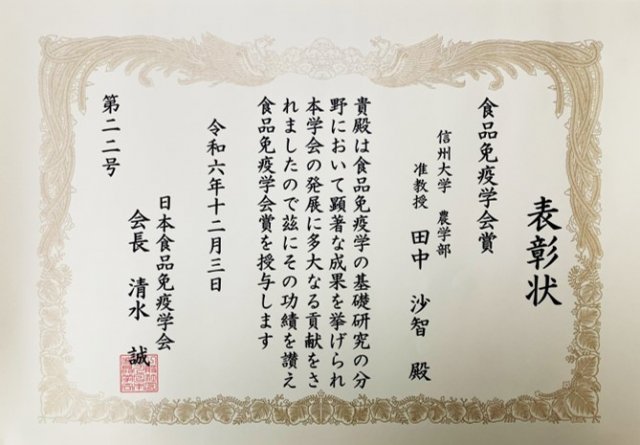 表彰状
食品免疫学会賞
信州大学 農学部
准教授 田中 沙智 殿
貴殿は食品免疫学の基礎研究の分
野において顕著な成果を挙げられ
本学会の発展に多大なる貢献をさ
れましたので茲にその功績を讃え
食品免疫学会賞を授与します
令和六年十二月三日
日本食品免疫学会
会長 清水 誠
第二二号